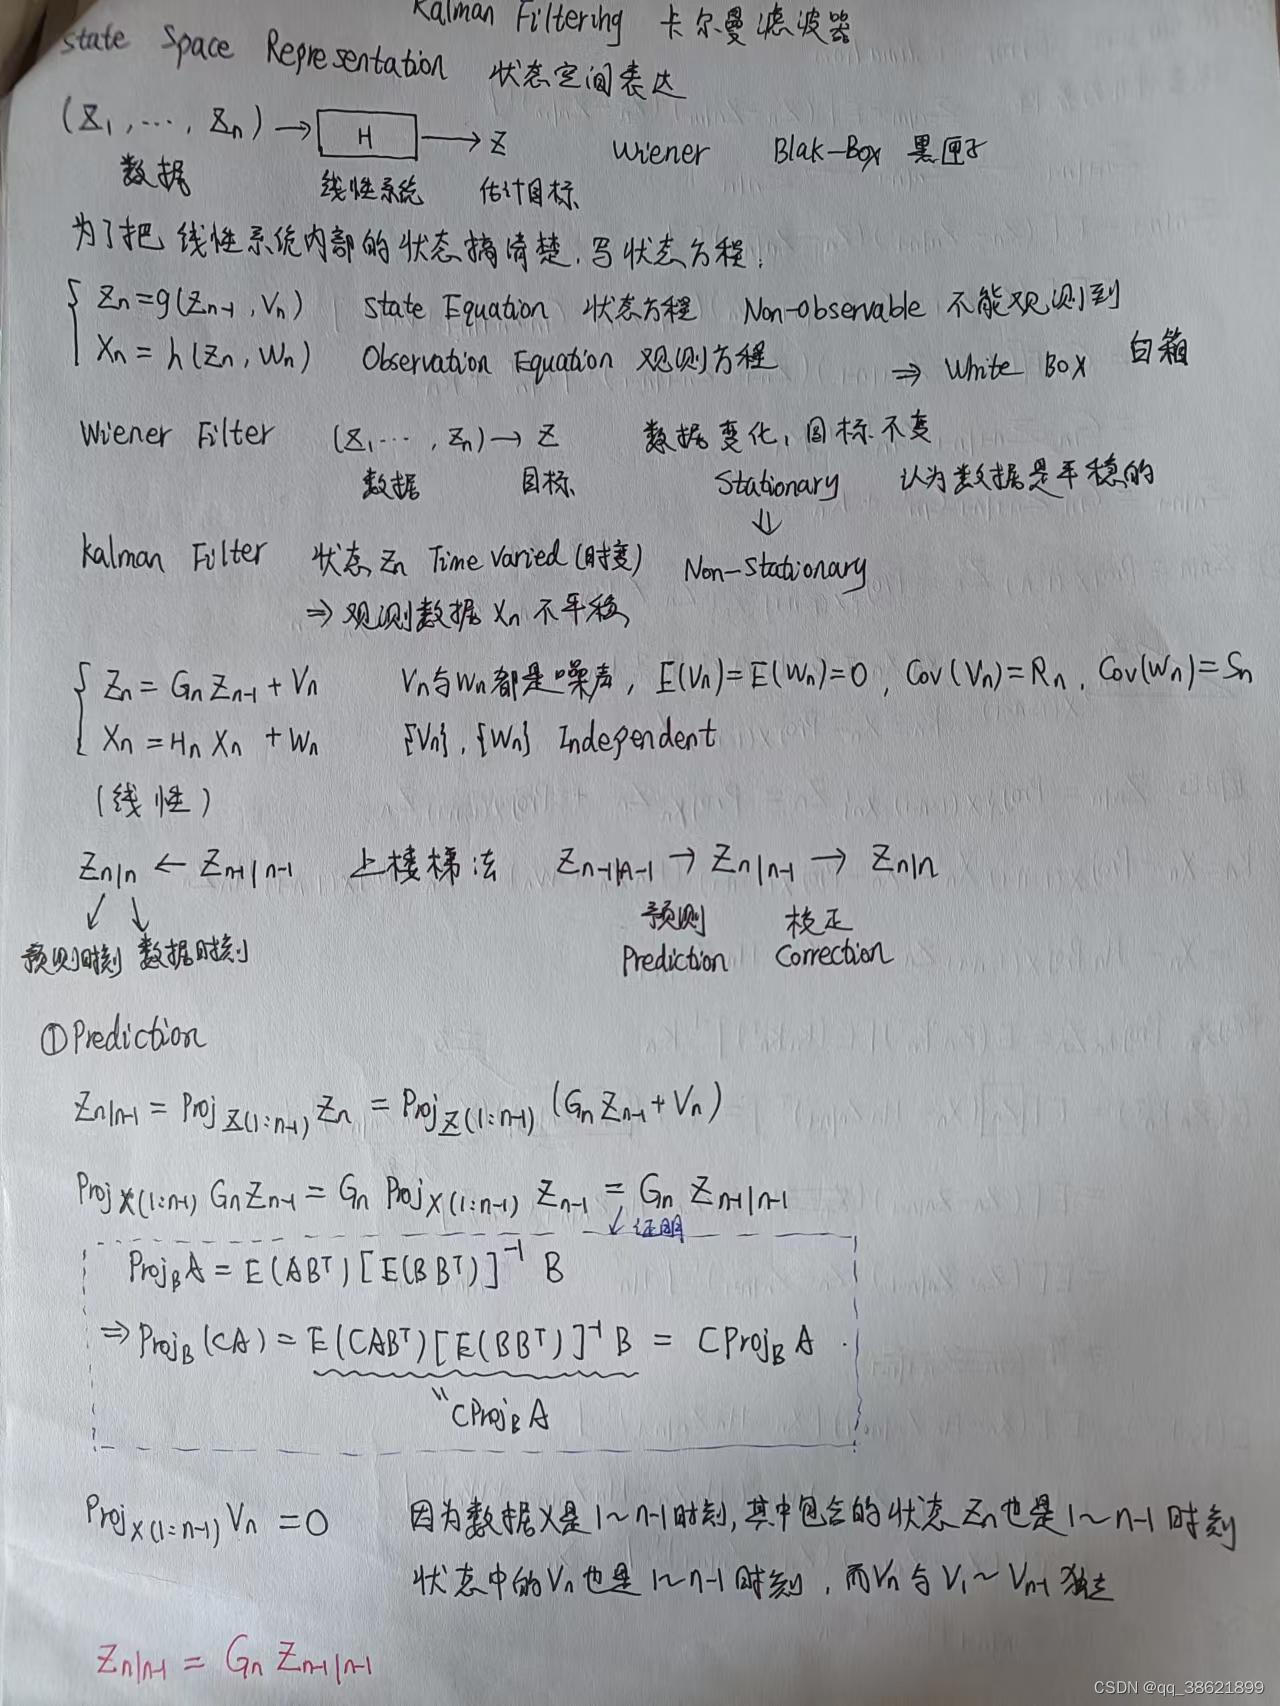 Kalman Filtering 卡尔曼滤波器
State Space Representation 状态空间表达
(Z₁, ⋯, Zn) → H → Z Wiener Blak-Box 黑匣子
数据 线性系统 估计目标
为了把线性系统内部的状态搞清楚,写状态方程:
{ Zn = g(Zn-1, Vn) State Equation 状态方程 Non-observable 不能观测到
Xn = h(Zn, Wn) Observation Equation 观测方程 ⇒ White Box 白箱
Wiener Filter (Z₁ ⋯, Zn) → Z 数据变化, 目标不变
数据 目标 Stationary 认为数据是平稳的
⇓
Kalman Filter 状态 Zn Time Varied (时变) Non-Stationary
⇒ 观测数据 Xn 不平稳
{ Zn = Gn Zn-1 + Vn Vn与Wn都是噪声, E(Vn)=E(Wn)=0, Cov(Vn)=Rn, Cov(Wn)=Sn
Xn = Hn Xn + Wn {Vn}, {Wn} Independent
(线性)
Zn|n ← Zn-1|n-1 上楼梯法 Zn-1|n-1 → Zn|n-1 → Zn|n
↙ ↘ 预测 校正
预测时刻 数据时刻 Prediction Correction
① Prediction
Zn|n-1 = Proj Z(1:n-1) Zn = Proj Z(1:n-1) (Gn Zn-1 + Vn)
Proj X(1:n-1) Gn Zn-1 = Gn Proj X(1:n-1) Zn-1 = Gn Zn-1|n-1
↙ 证明
Proj_B A = E(ABᵀ)[E(BBᵀ)]⁻¹ B
⇒ Proj_B (CA) = E(CABᵀ)[E(BBᵀ)]⁻¹ B = C Proj_B A
" C Proj_B A
Proj X(1:n-1) Vn = 0 因为数据X是1~n-1时刻, 其中包含的状态Zn也是1~n-1时刻
状态中的Vn也是1~n-1时刻, 而Vn与V₁~Vn-1独立
Zn|n-1 = Gn Zn-1|n-1
CSDN @qq_38621899